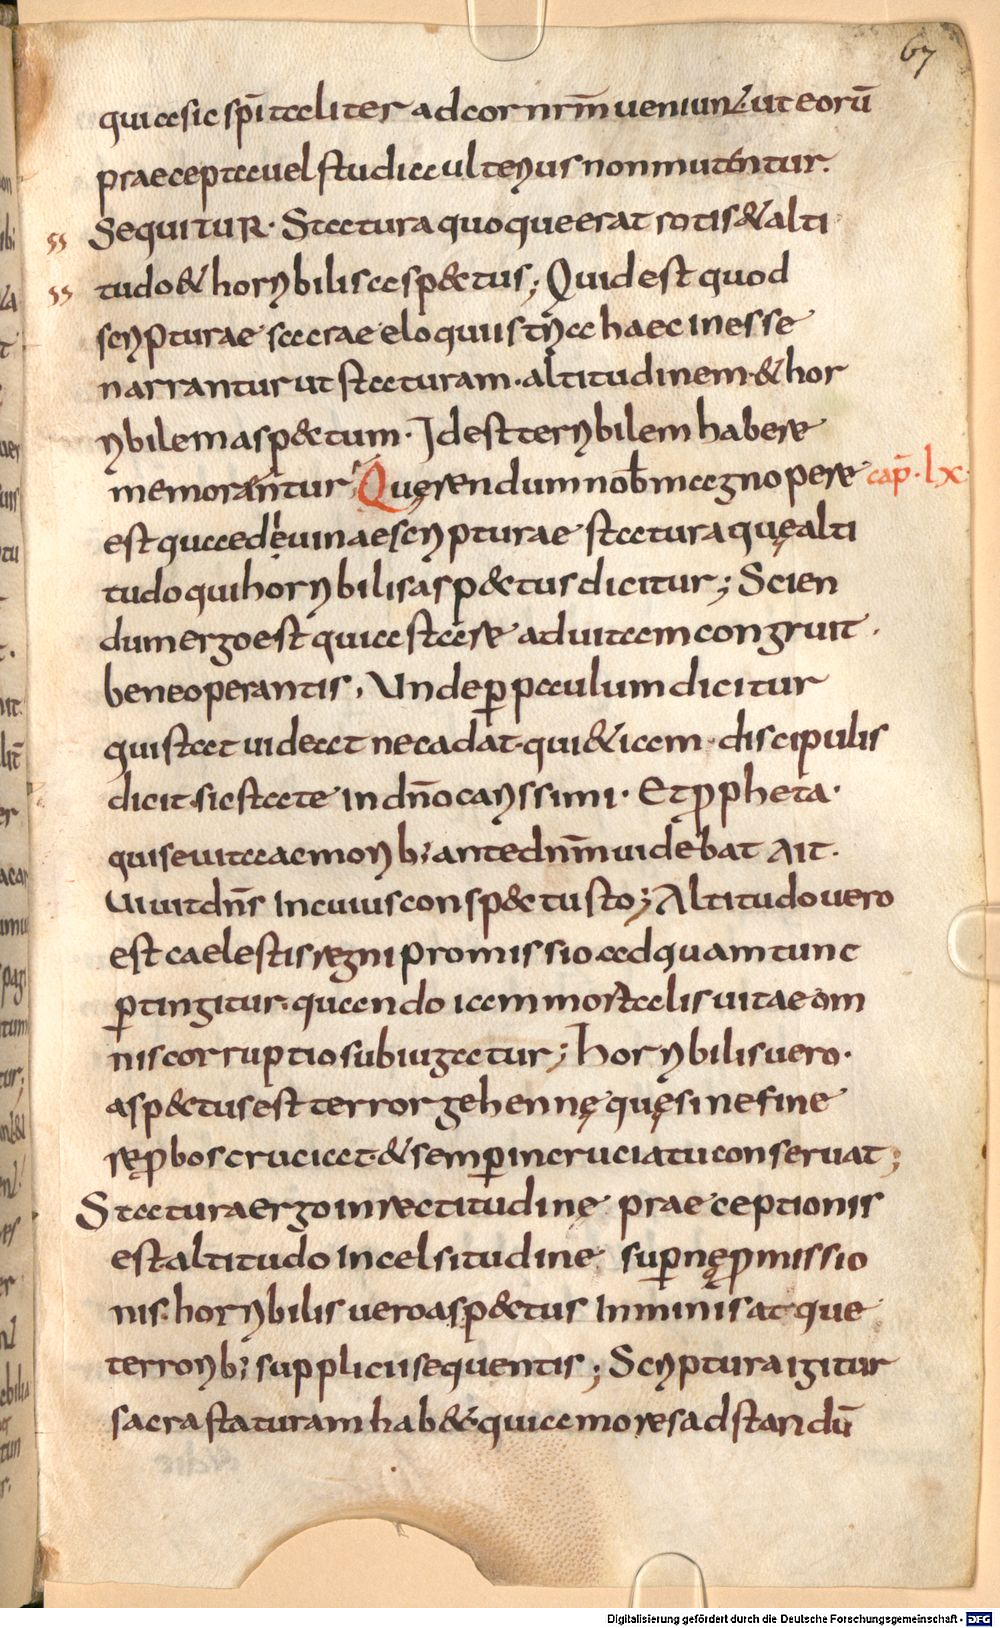 67
quia sic sp̄italiter ad cor nr̄m ueniunt ut eorū
praecepta uel studia ultenus non mutentur.
SEQUITUR. Statura quoque erat rotis & alti
tudo & horribilis aspectus; Quid est quod
scripturae sacrae eloquiis tria haec inesse
narrantur ut staturam. altitudinem. & hor
ribilem aspectum. Id est terribilem habere
memorantur; Quęrendum nob̄ magno pere cap̄. lx.
est quae deuinae scripturae statura quę alti
tudo qui horribilis aspectus dicitur; Scien
dum ergo est quia stare ad uitam congruit.
bene operantis, Unde p̱ paulum dicitur
qui stat uideat ne cadat. qui & iam. discipulis
dicit. sic state in dn̄o carissimi. Et ꝓpheta.
qui se uita ac morib; ante dn̄m uidebat Ait.
Uiuit dn̄s in cuius conspectu sto; Altitudo uero
est caelestis regni promissio ad quam tunc
p̱tingitur. quando iam mortalis uitae om
nis corruptio subiugatur; horribilis uero.
aspectus est terror gehennę quę sine fine
reꝓbos cruciat. & semp̱ in cruciatu conseruat;
Statura ergo in rectitudinę praeceptionis
est altitudo in celsitudine sup̱nę ꝓmissio
nis. horribilis uero aspectus in minis atque
terrorib; supplicii sequentis; Scriptura igitur
sacra staturam hab&. quia mores ad standū
Digitalisierung gefördert durch die Deutsche Forschungsgemeinschaft - DFG